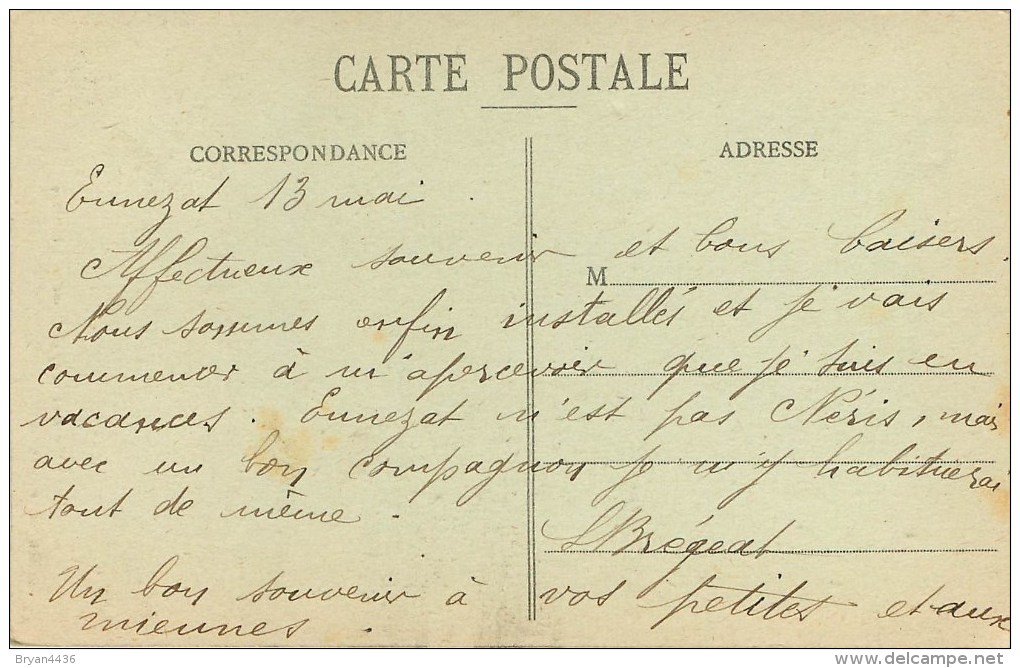 CARTE POSTALE
CORRESPONDANCE
ADRESSE
Ennezat 13 mai.
Affectueux souvenir et bons baisers.
M
Nous sommes enfin installés et je vais
commencer à m'apercevoir que je suis en
vacances. Ennezat n'est pas Néris, mais
avec un bon compagnon je m'y habituerai
tout de même.
LBrégeat
Un bon souvenir à vos petites et aux
miennes.
Bryan4436
delcampe.net